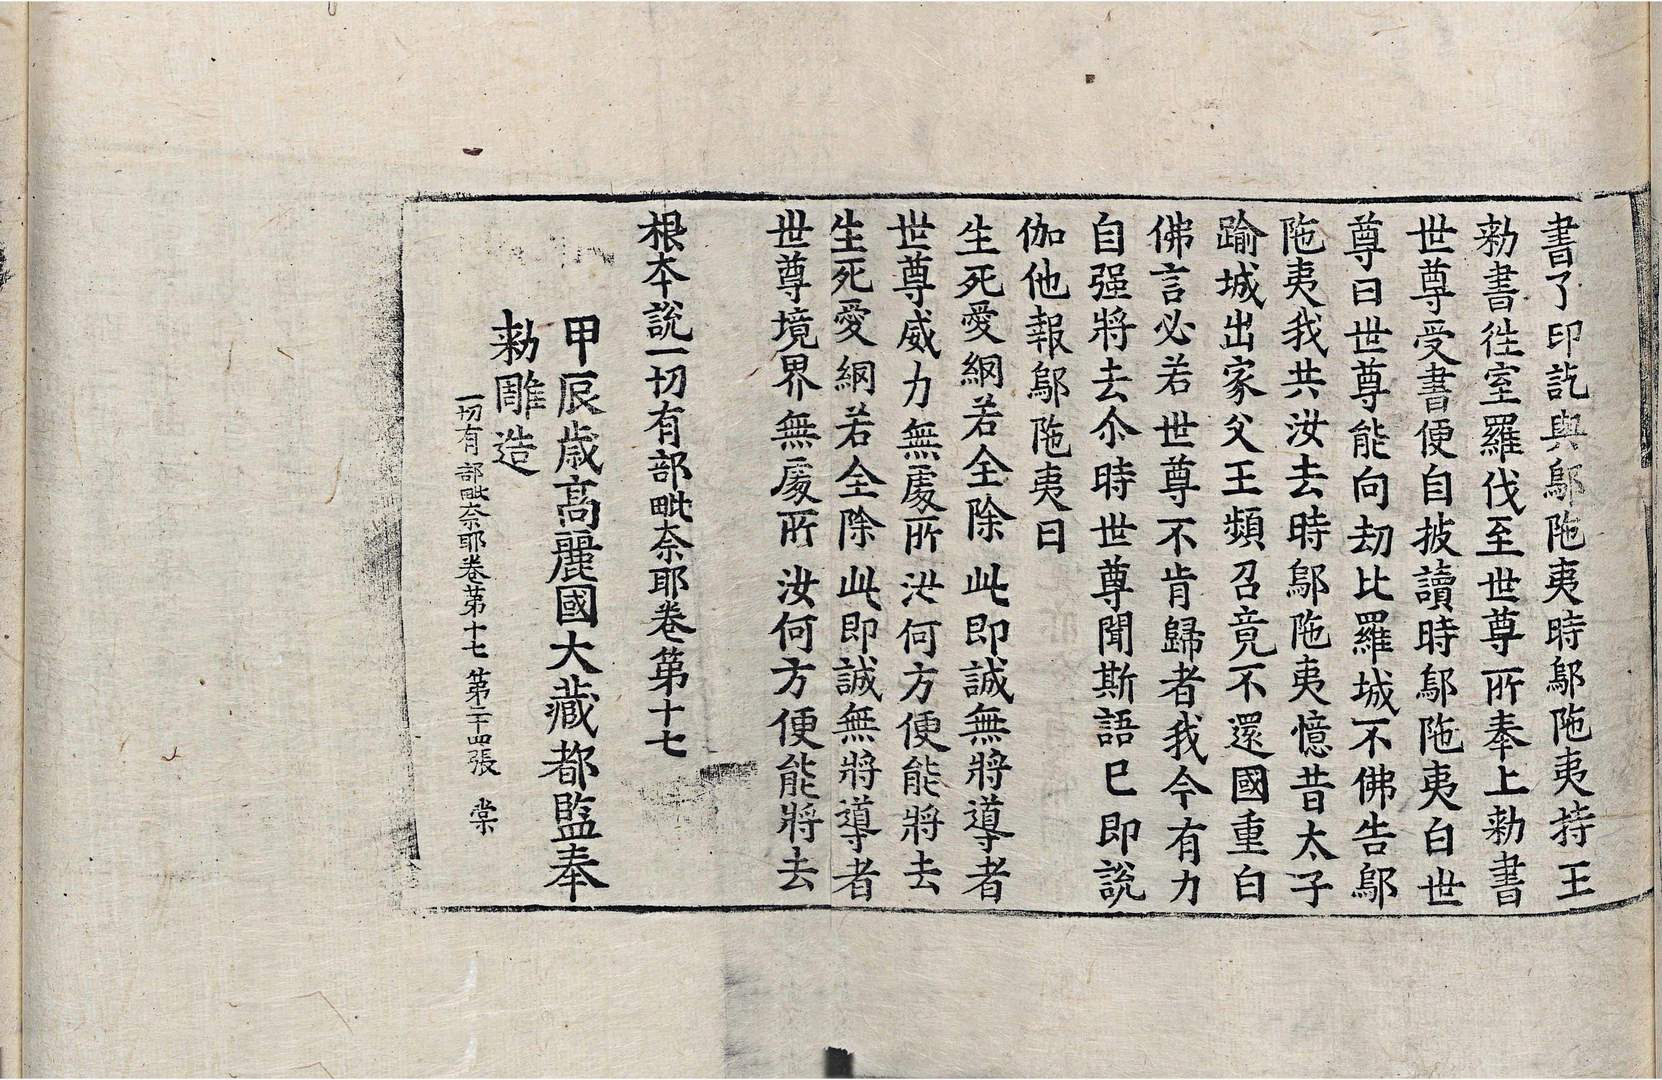 書了印訖與鄔陁夷時鄔陁夷持王
勑書往室羅伐至世尊所奉上勑書
世尊受書便自披讀時鄔陁夷白世
尊曰世尊能向劫比羅城不佛告鄔
陁夷我共汝去時鄔陁夷憶昔太子
踰城出家父王頻召竟不還國重白
佛言必若世尊不肯歸者我今有力
自强將去尒時世尊聞斯語已即說
伽他報鄔陁夷曰
生死愛網若全除 此即誠無將導者
世尊威力無處所 汝何方便能將去
生死愛網若全除 此即誠無將導者
世尊境界無處所 汝何方便能將去
根本說一切有部毗奈耶卷第十七
甲辰歲高麗國大藏都監奉
勑雕造
一切有部毗奈耶卷第十七 第二十四張 棠